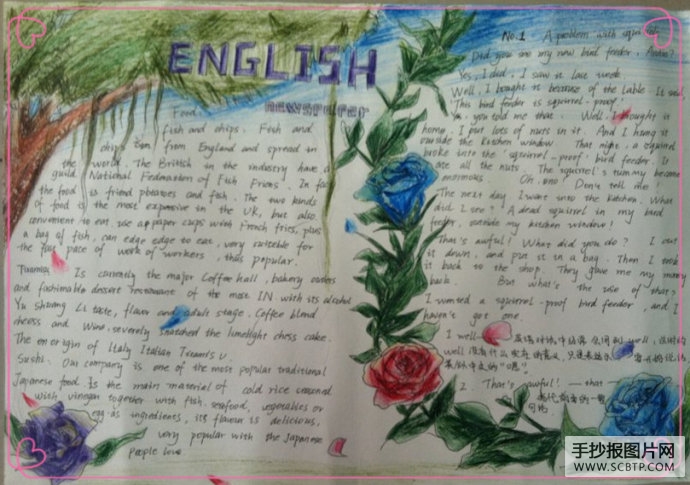 ENGLISH
newspaper
Food.
fish and chips. Fish and
chips from England and spread in
the world. The British in the industry have a
guild National Federation of Fish Friers. In fact
the food is friend potatoes and fish. The two kinds
of food is the most expensive in the UK, but also
convenient to eat, use a paper cups with French fries, plus
a bag of fish, can edge edge to eat, very suitable for
the fast pace of work of workers, thus popular.
Tiramisu Is currently the major Coffee hall, bakery
and fashionable dessert restaurant of the most IN. with its alcohol
Yu Shuang Li taste, flavor and adult stage. Coffee blend
cheess and Wine. severely snatched the limelight chess cake.
The origin of Italy Italian
Sushi. Our company is one of the most popular traditional
Japanese food. Is the main material of cold rice seasoned
with vinegar together with fish. seafood, vegetables or
egg as ingredients, its flavour is delicious,
very popular with the Japanese
People love
No.1 A problem with squirrel
Did you see my new bird feeder,
Yes, I did, I saw it last week.
Well, I bought it because of the lable. It said,
This bird feeder is squirrel-proof.
you told me that. Well, I bought it
home, I put lots of nuts in it. And I hung it
outside the kitchen window. That nige, a squirrel
broke into the squirrel-proof bird feeder. It
ate all the nuts. The squirrel's tummy became
enormous Oh, ono! Don't tell me!
The next day, I went into the kitchen. What
did I see? A dead squirrel in my bird
feeder, outside my kitchen window!
That's awful! What did you do? I cut
it down, and put it in a bag. Then I took
it back to the shop. They gave me my money
back. But what's the use of that?
I wanted a squirrel-proof bird feeder, and I
haven't got one.
I well
well 没有什么实在的意义, 只是表达
2. That's awful! — that
手抄报图片网
WWW.SCBTP.COM